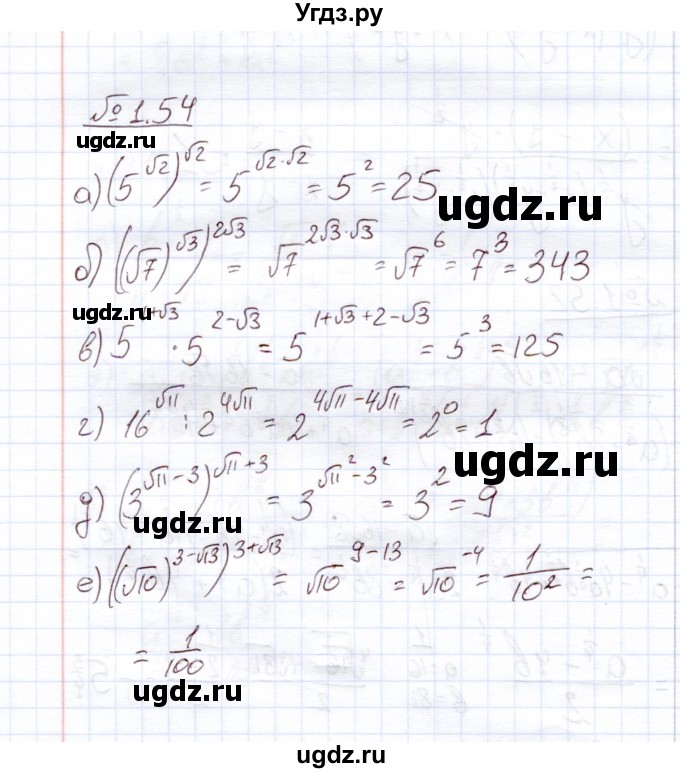 Угдз.ру
№ 1.54
ugdz.ru
а) (5^√2)^√2 = 5^(√2·√2) = 5^2 = 25
ugdz.ru
ugdz.ru
б) ((√7)^√3)^(2√3) = √7^(2√3·√3) = √7^6 = 7^3 = 343
ugdz.ru
в) 5^(1+√3) · 5^(2-√3) = 5^(1+√3+2-√3) = 5^3 = 125
г) 16^√11 : 2^(4√11) = 2^(4√11-4√11) = 2^0 = 1
ugdz.ru
д) (3^(√11-3))^(√11+3) = 3^(√11^2-3^2) = 3^2 = 9
ugdz.ru
е) ((√10)^(3-√13))^(3+√13) = √10^(9-13) = √10^(-4) = 1/10^2 =
= 1/100
ugdz.ru
ugdz.ru